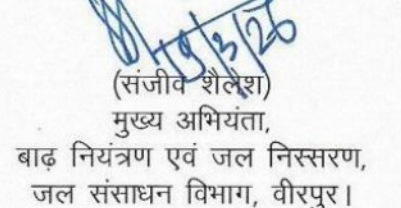 19/3/26
(संजीव शैलेश)
मुख्य अभियंता,
बाढ़ नियंत्रण एवं जल निस्सरण,
जल संसाधन विभाग, वीरपुर।